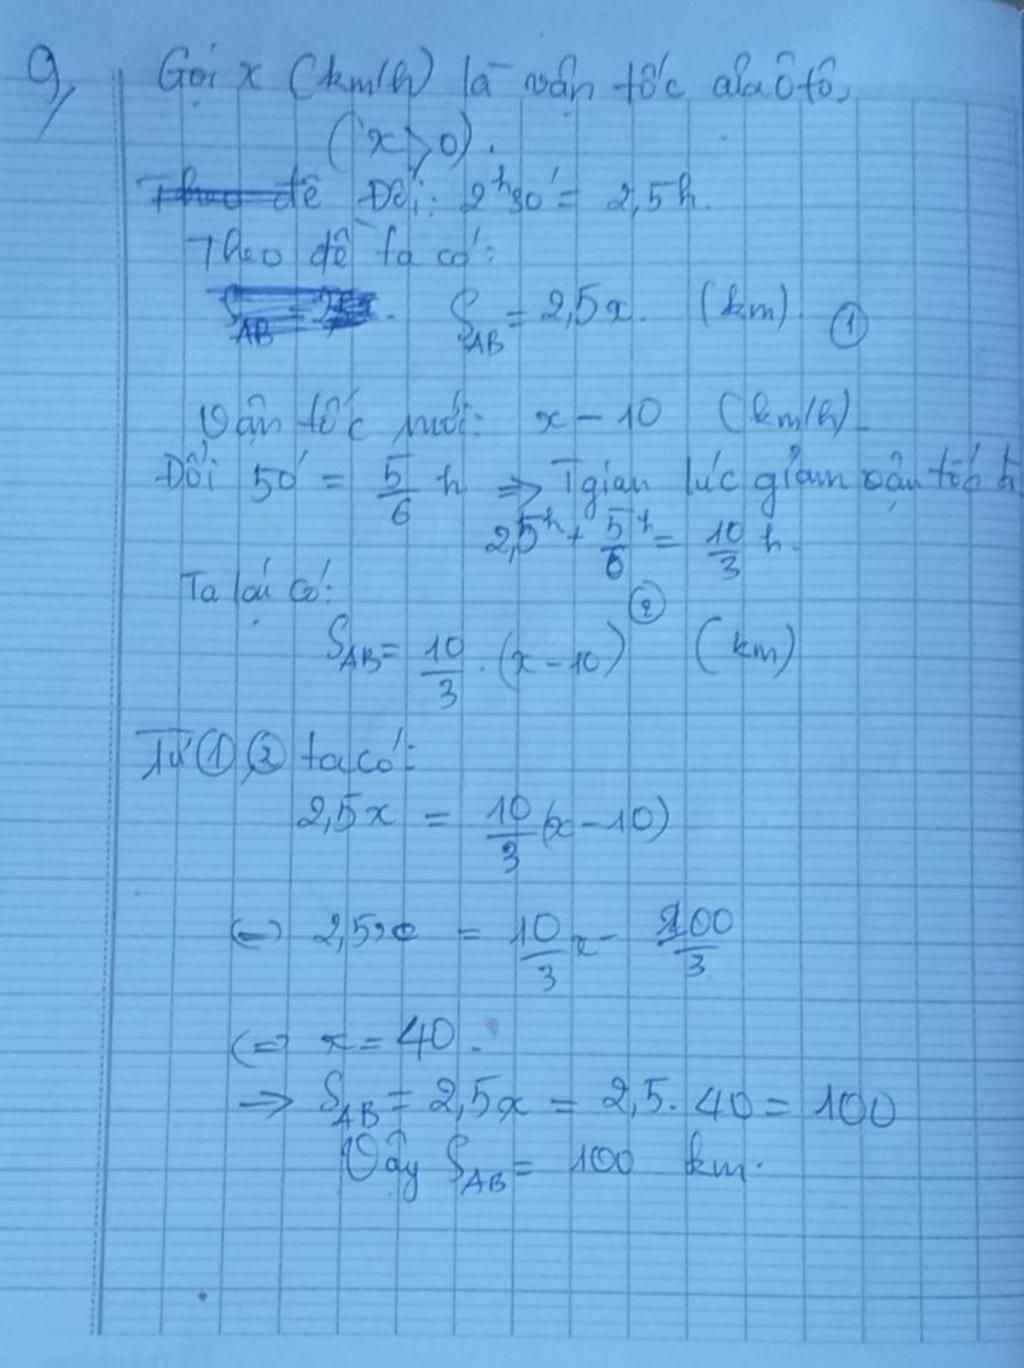 9, Gọi x (km/h) là vận tốc của ô tô,
(x > 0).
Theo đề Đổi: 2h30' = 2,5h.
Theo đề ta có:
S_AB = 2,5x. (km). ①
Vận tốc mới: x - 10 (km/h)
Đổi 50' = 5/6 h => Tgian lúc giảm vận tốc
2,5h + 5/6 h = 10/3 h.
Ta lại có:
S_AB = 10/3 . (x - 10) ② (km)
Từ ①, ② ta có:
2,5x = 10/3 (x - 10)
<=> 2,5x = 10/3 x - 100/3
<=> x = 40.
=> S_AB = 2,5x = 2,5. 40 = 100
Vậy S_AB = 100 km.